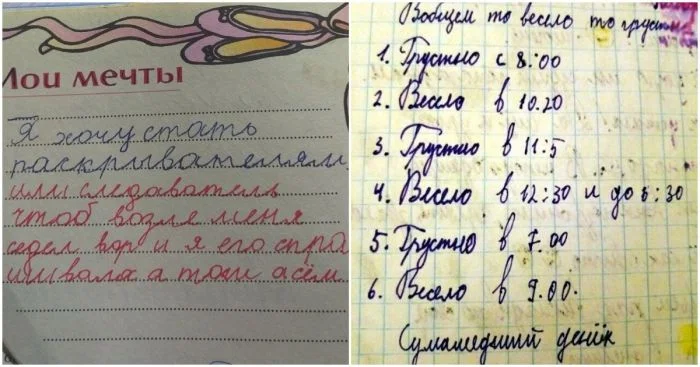 Мои мечты
Я хочу стать
раскрывателям
или следаватель
чтоб возле меня
седел вор и я его спра
шивала а тош осём
Вобщем то весело то грустно
1. Грустно с 8:00
2. Весело в 10.20
3. Грустно в 11:5
4. Весело в 12:30 и до 5:30
5. Грустно в 7.00
6. Весело в 9.00.
Сумашедший денёк